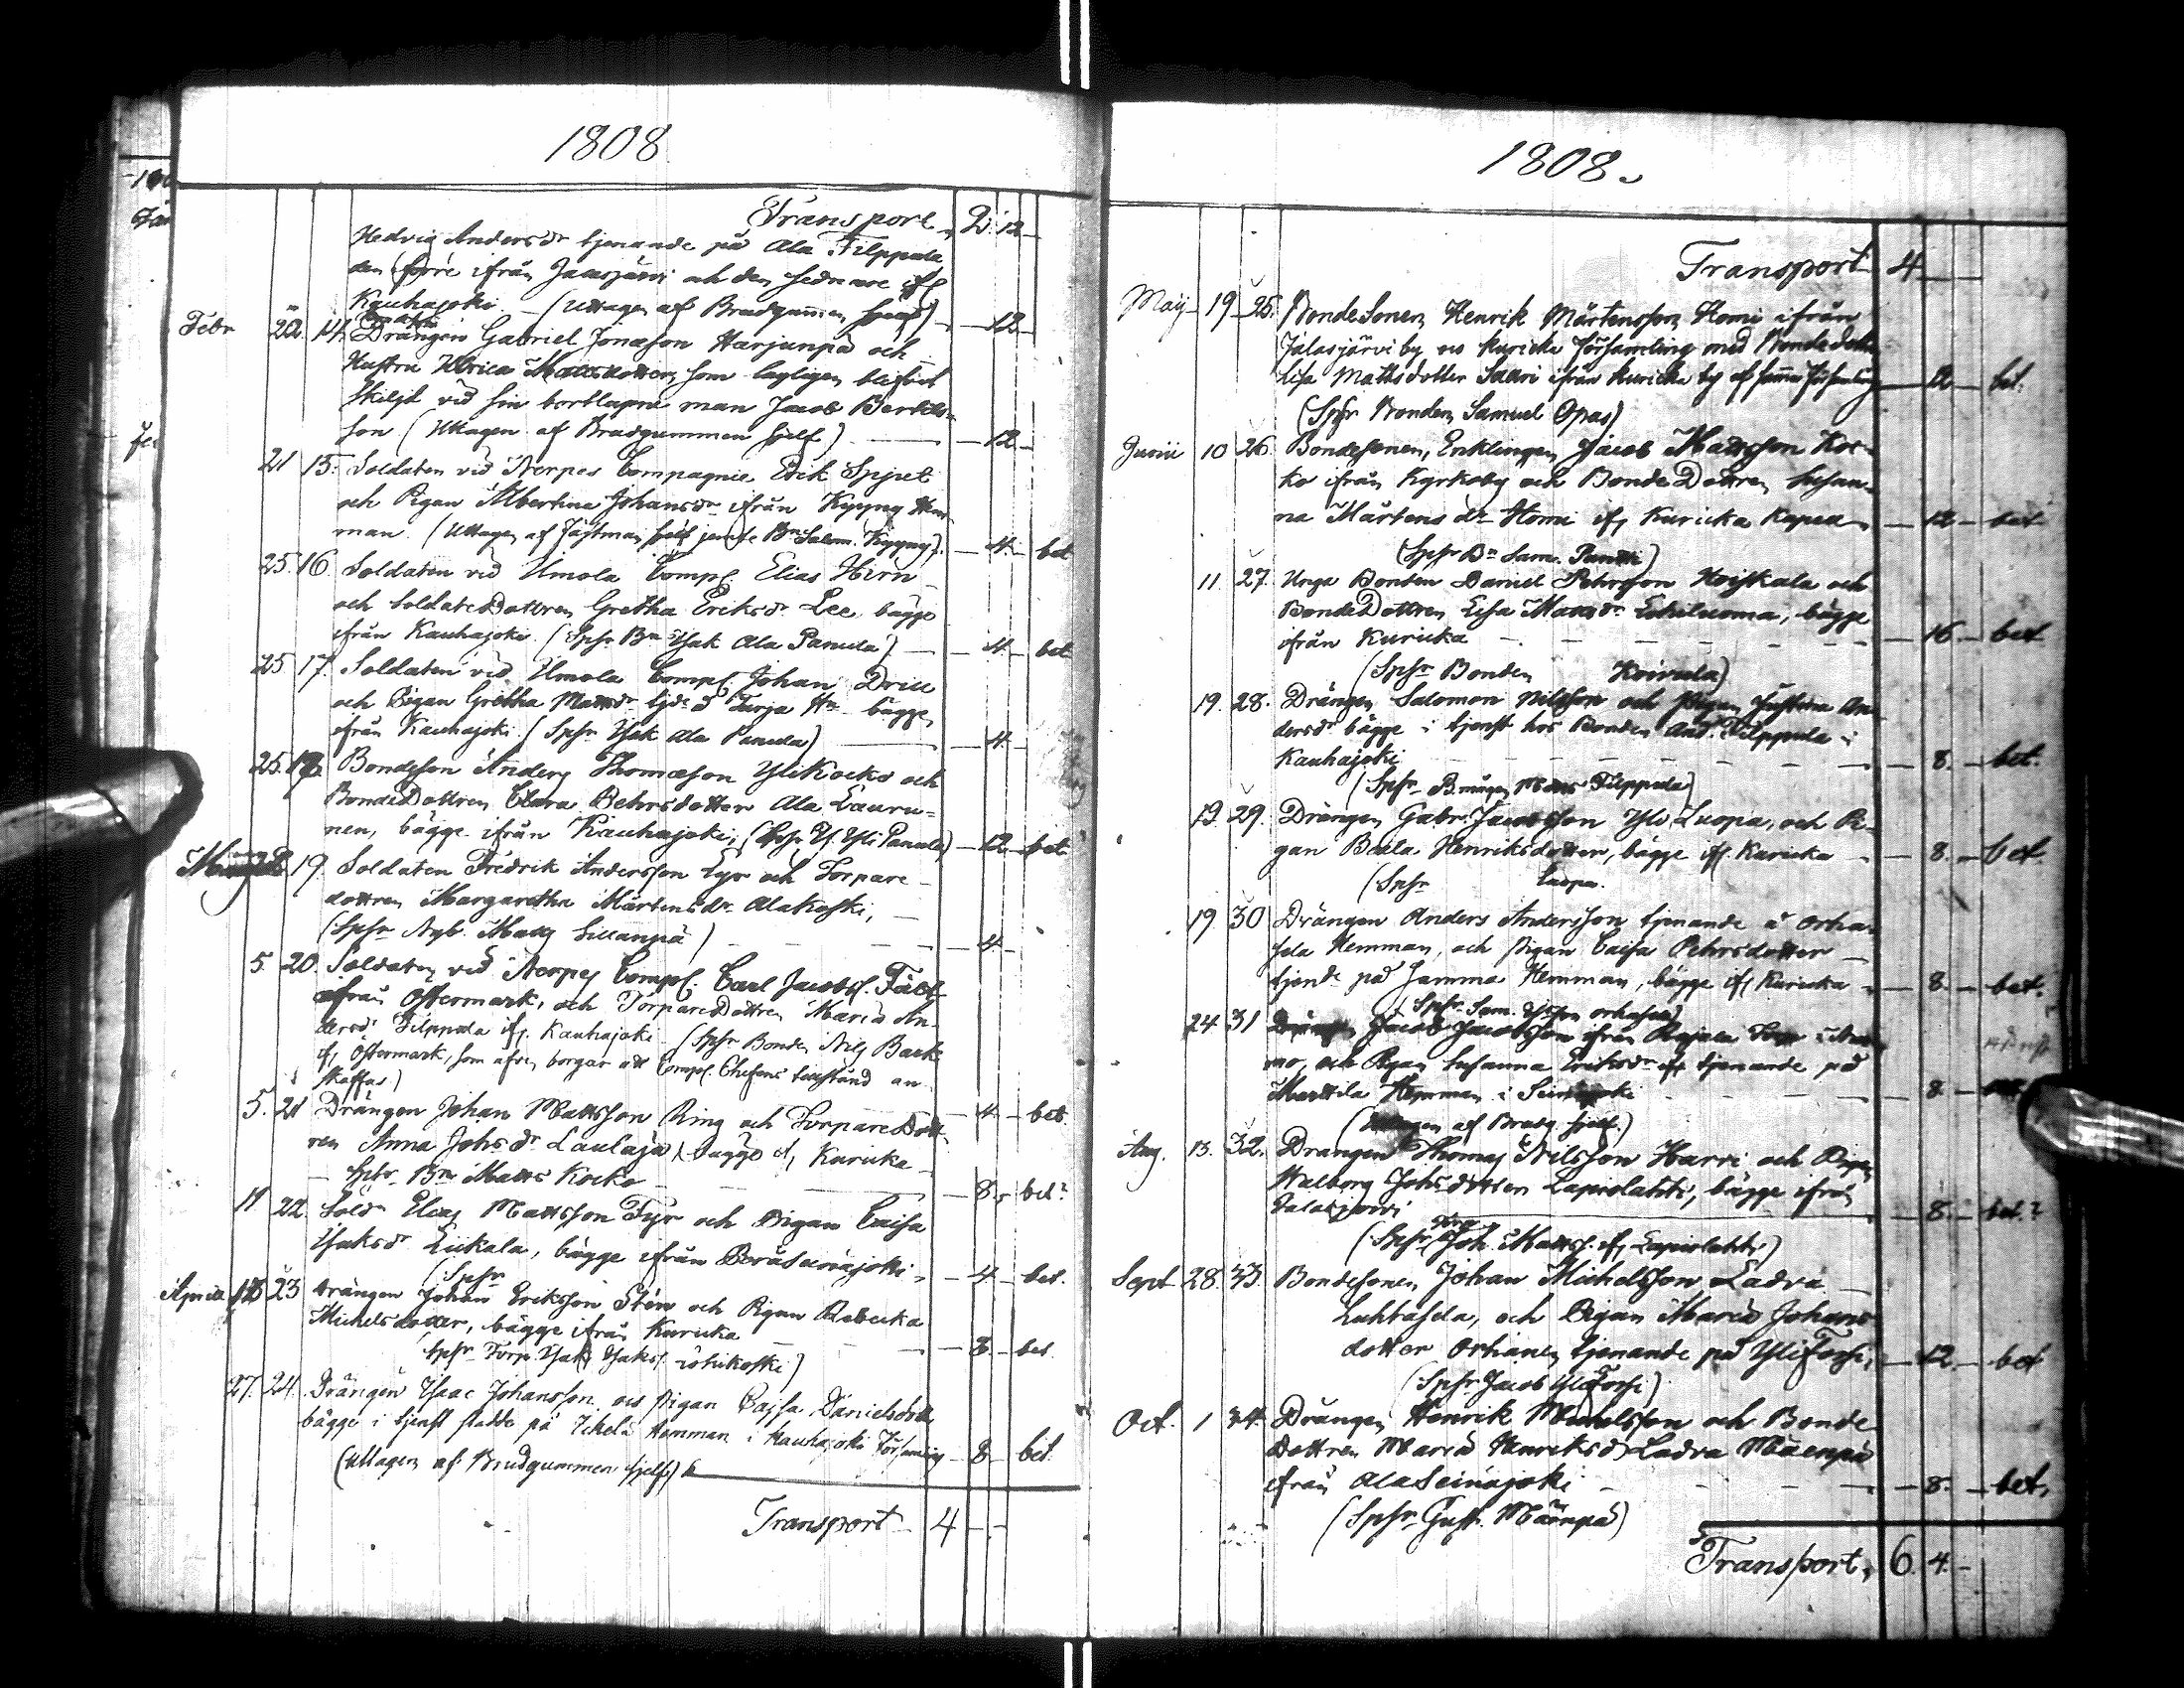 1808
Transport 2 12
Hedvig Andersdr tjenande på Ala Filppula
den förre ifrån Jalasjärvi och den sednare ifr
Kauhajoki (Uttagen af Brudgummen sjelf) 12
Febr 20 14. Drängen Gabriel Jonæson Harjunpä och
Hustru Ulrica Mattsdotter, som lagligen blifvit
skiljd vid sin bortlupne man Jacob Bertils-
son (Uttagen af Brudgummen sjelf) 12
21 15. Soldaten vid Nerpes Compagnie Erik Spjut
och Pigan Albertina Johansdr ifrån Kyyny Hem-
man. (Uttagen af Fästman sjelf jemte Bn Salom. Kyyny) 4 bet
25. 16. Soldaten vid Ilmola Comp. Elias Hirn
och SoldateDottren Gretha Eriksdr Lee bägge
ifrån Kauhajoki (Spsr Bn Isak Ala Panula) 4 bet
25 17. Soldaten vid Ilmola Comp. Johan Drill
och Pigan Gretha Mattsdr tjde å Turja Hn bägge
ifrån Kauhajoki (Spsr Isak Ala Panula) 4
25. 18. Bondeson Anders Thomæson Yli Kocko och
BondeDottren Clara Pehrsdotter Ala Lauru-
nen, bägge ifrån Kauhajoki, (Spsr Is. Yli Panula) 12 bet
19. Soldaten Fredrik Andersson Lyr och Torpare
dottren Margaretha Mårtensdr Alakoski,
(Spsr Nyb. Matts Sillanpä) 4
5. 20. Soldaten vid Nerpes Comp. Carl Jacobss. Fält
ifrån Östermark, och TorpareDottren Maria An-
dersdr Filppula ifr. Kauhajoki (Spsr Bonden Nils Backe
ifr Östermark, som äfven borgar att Comp. Chefens tillstånd an-
skaffas) 4 bet.
5. 21 Drängen Johan Mattsson Ring och TorpareDott-
ren Anna Johsdr Laulaja, bägge ifr Kuricka
Spsr Bn Matts Kocko 8 bet?
11 22. Soldn Elias Mattsson Fyr och Pigan Caisa
Isaksdr Liikala, bägge ifrån PeräSeinäjoki 4 bet.
(Spsr
Aprill 18 23 Drängen Johan Eriksson Stén och Pigan Rebecka
Michelsdotter, bägge ifrån Kuricka 8 bet
Spsr Torp. Isak Isakss. Löhikoski)
27. 24. Drängen Isaac Johansson och Pigan Cajsa Danielsdotter
bägge i tjenst stadde på Ickelä Hemman i Kauhajoki Församling 8 bet.
(Uttagen af Brudgummen sjelf)
Transport 4
1808.
Transport 4
Maij 19 25. BondeSonen Henrik Mårtensson Homi ifrån
Jalasjärvi by och Kuricka församling med Bondedotter
Lisa Mattsdotter Saari ifrån Kuricka by af samma församling 12 bet.
(Spsr Bonden Samuel Opas)
Junii 10 26. Bondesonen, Enklingen Jacob Mattsson Koc-
ko ifrån Kyrkoby och BondeDottren Susan-
na Mårtensdr Homi ifr Kuricka Kapell 12 bet
(Spsr Bn Sam. Pantti)
11. 27. Unga Bonden Daniel Pehrsson Koiskala och
BondeDottren Lisa Mattsdr Eskeluoma, bägge
ifrån Kuricka 16 bet
(Spsr Bonden Koivula)
19. 28. Drängen Salomon Nilsson och Pigan Justina An-
dersdr bägge i tjenst hos Bonden And. Filppula i
Kauhajoki 8. bet.
(Spsr B.mågen Matts Filppula)
19. 29. Drängen Gabr. Jacobsson Yli Luopa, och Pi-
gan Beata Henriksdotter, bägge ifr. Kuricka 8. bet.
(Spsr Luopa.
19 30 Drängen Anders Andersson tjenande å Orha-
sela Hemman, och Pigan Caisa Pehrsdotter
tjende på samma Hemman, bägge ifr Kuricka 8. bet.
(Spsr Sam. Orhasela)
24 31 Jacob Jacobsson ifrån Rajala Torp i
mo, och Pigan Susanna Eriksdr tjenande på
Marttila Hemman i Seinäjoki 8
(Uttagen af Brudg. sjelf.)
Aug. 13. 32. Drängen Thomas Nilsson Harri och Pigan
Walborg Johsdotter Lapiolahti, bägge ifrån
Jalasjärvi 8. bet.?
(Spsr Joh. Mattss. ifr Lapiolahti)
Sept 28. 33. Bondesonen Johan Michelsson Ladva
Luhtasela, och Pigan Maria Johans-
dotter Orhanen, tjenande på Yli Torsi, 12. bet
(Spsr Jacob Yli Torsi)
Oct. 1 34. Drängen Henrik Michelsson och Bonde
Dottren Maria Henriksdr Ladva Mäenpä
ifrån Ala Seinäjoki 8. bet.
(Spsr Gust. Mäenpä)
Transport, 6. 4.